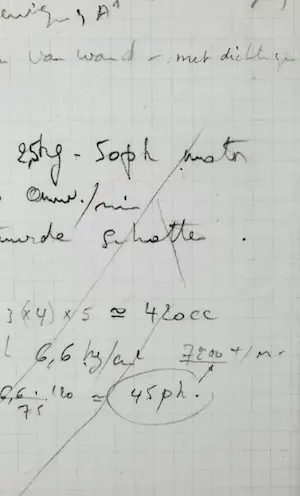 van wand – met dichtings
25kg – 50ph motor
omw./min
waarde schatten.
3 (x4) x 5 ≅ 420cc
6,6 kg/cm² 7200 t/m.
6,6 · 120 / 75 ≈ 45ph.